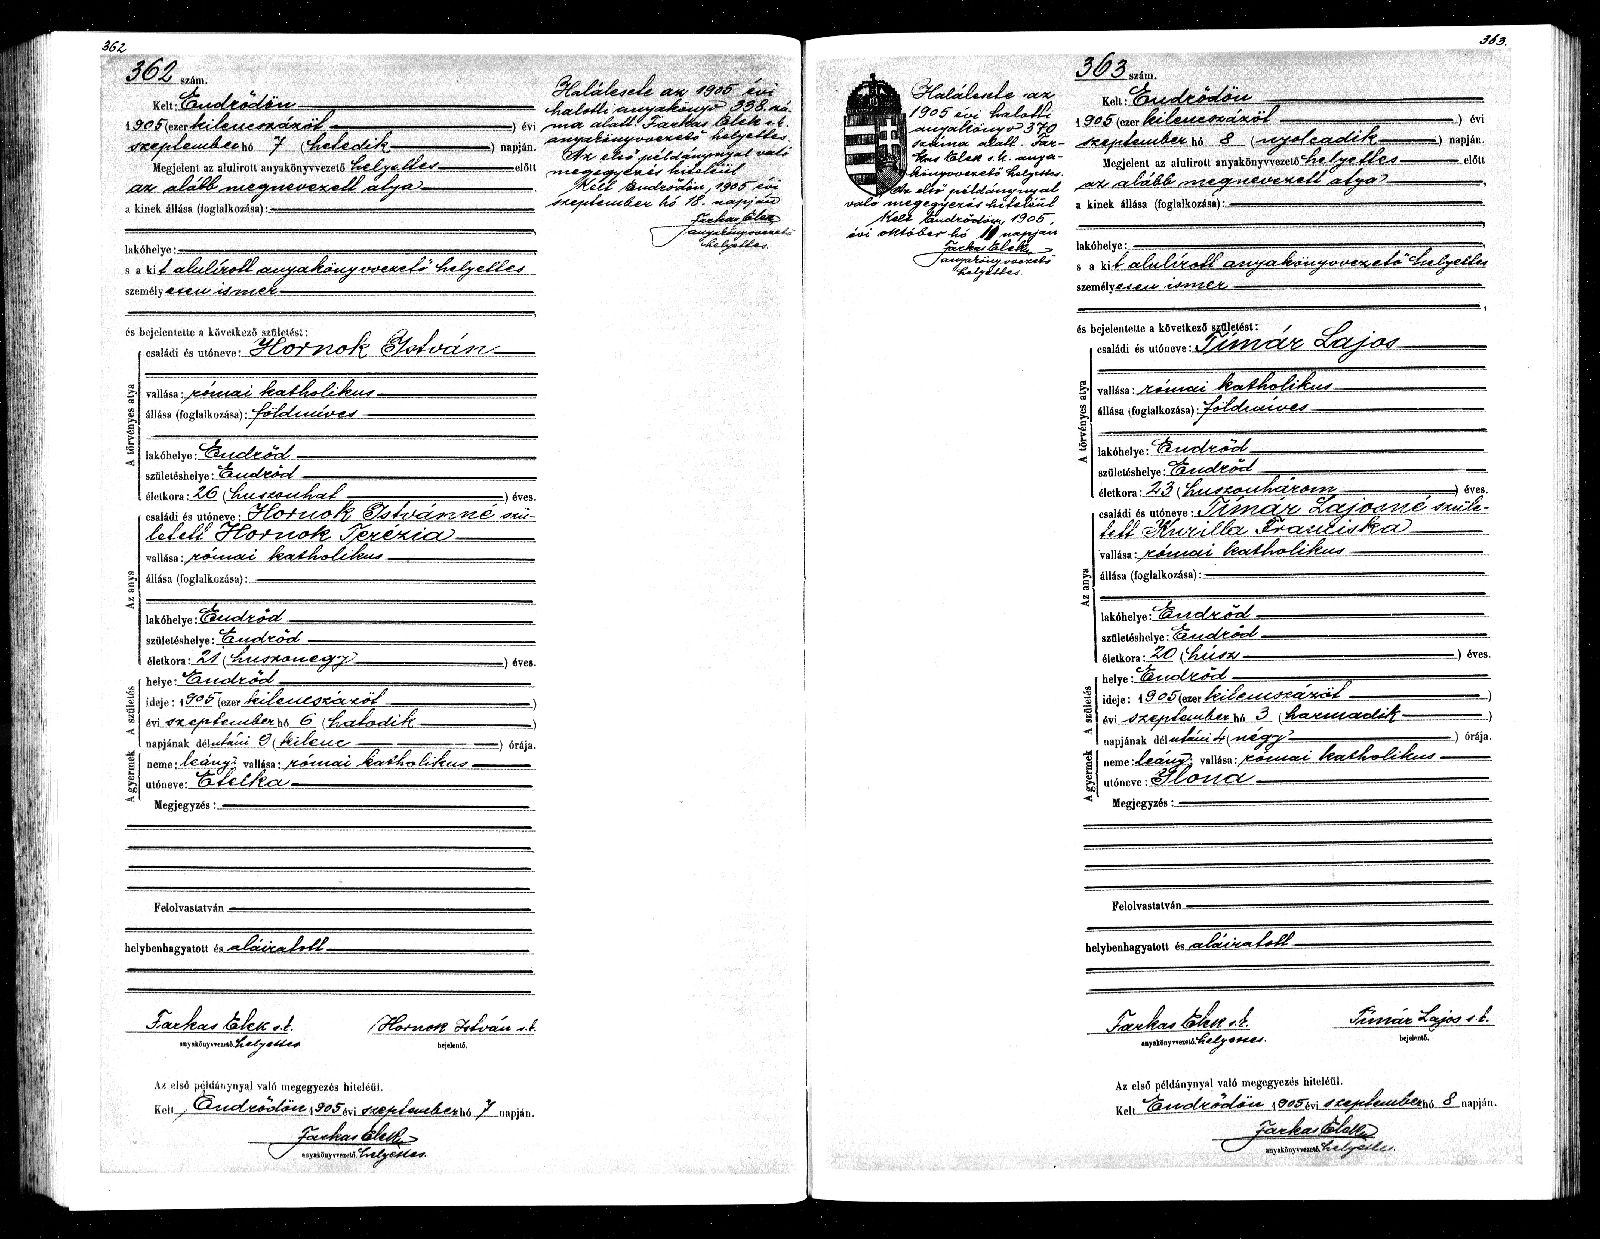 362
362 szám.
Kelt: Endrődön
1905 (ezer kilencszázöt) évi
szeptember hó 7 (hetedik) napján.
Megjelent az alulirott anyakönyvvezető helyettes előtt
az alább megnevezett atya
a kinek állása (foglalkozása):
lakóhelye:
s a kit alulírott anyakönyvvezető helyettes
személyesen ismer
és bejelentette a következő születést:
A törvényes atya
családi és utóneve: Hornok István
vallása: római katholikus
állása (foglalkozása): földmíves
lakóhelye: Endrőd
születéshelye: Endrőd
életkora: 26 (huszonhat) éves.
Az anya
családi és utóneve: Hornok Istvánné szü-
letett Hornok Terézia
vallása: római katholikus
állása (foglalkozása):
lakóhelye: Endrőd
születéshelye: Endrőd
életkora: 21 (huszonegy) éves.
A születés
helye: Endrőd
ideje: 1905 (ezer kilencszázöt
évi szeptember hó 6 (hatodik)
napjának délutáni 9 (kilenc) órája.
A gyermek
neme: leány, vallása: római katholikus
utóneve: Etelka
Megjegyzés:
Felolvastatván
helybenhagyatott és aláiratott
Farkas Elek s.k.
anyakönyvvezető helyettes
Hornok István s.k.
bejelentő.
Az első példánynyal való megegyezés hiteléül.
Kelt Endrődön 1905 évi szeptember hó 7 napján.
Farkas Elek
anyakönyvvezető helyettes.
Halálesete az 1905 évi
halotti anyakönyv 338 szá-
ma alatt Farkas Elek s.k.
anyakönyvvezető helyettes
Az első példánynyal való
megegyezés hiteléül
Kelt Endrődön, 1905 évi
szeptember hó 18. napján
Farkas Elek
anyakönyvvezető
helyettes.
363.
Halálesete az
1905 évi halotti
anyakönyv 370
száma alatt Far-
kas Elek s.k. anya-
könyvvezető helyettes.
Az első példánynyal
való megegyezés hiteléül
Kelt Endrődön, 1905.
évi október hó 11 napján
Farkas Elek
anyakönyvvezető
helyettes.
363 szám.
Kelt: Endrődön
1905 (ezer kilencszázöt) évi
szeptember hó 8 (nyolcadik) napján.
Megjelent az alulirott anyakönyvvezető helyettes előtt
az alább megnevezett atya
a kinek állása (foglalkozása):
lakóhelye:
s a kit alulírott anyakönyvvezető helyettes
személyesen ismer
és bejelentette a következő születést:
A törvényes atya
családi és utóneve: Tímár Lajos
vallása: római katholikus
állása (foglalkozása): földmíves
lakóhelye: Endrőd
születéshelye: Endrőd
életkora: 23 (huszonhárom) éves.
Az anya
családi és utóneve: Tímár Lajosné szüle-
tett Kurilla Franciska
vallása: római katholikus
állása (foglalkozása):
lakóhelye: Endrőd
születéshelye: Endrőd
életkora: 20 (húsz) éves.
A születés
helye: Endrőd
ideje: 1905 (ezer kilencszázöt)
évi szeptember hó 3 (harmadik)
napjának délutáni 4 (négy) órája.
A gyermek
neme: leány, vallása: római katholikus
utóneve: Ilona
Megjegyzés:
Felolvastatván
helybenhagyatott és aláiratott
Farkas Elek s.k.
anyakönyvvezető helyettes.
Tímár Lajos s.k.
bejelentő.
Az első példánynyal való megegyezés hiteléül.
Kelt Endrődön 1905 évi szeptember hó 8 napján.
Farkas Elek
anyakönyvvezető helyettes.